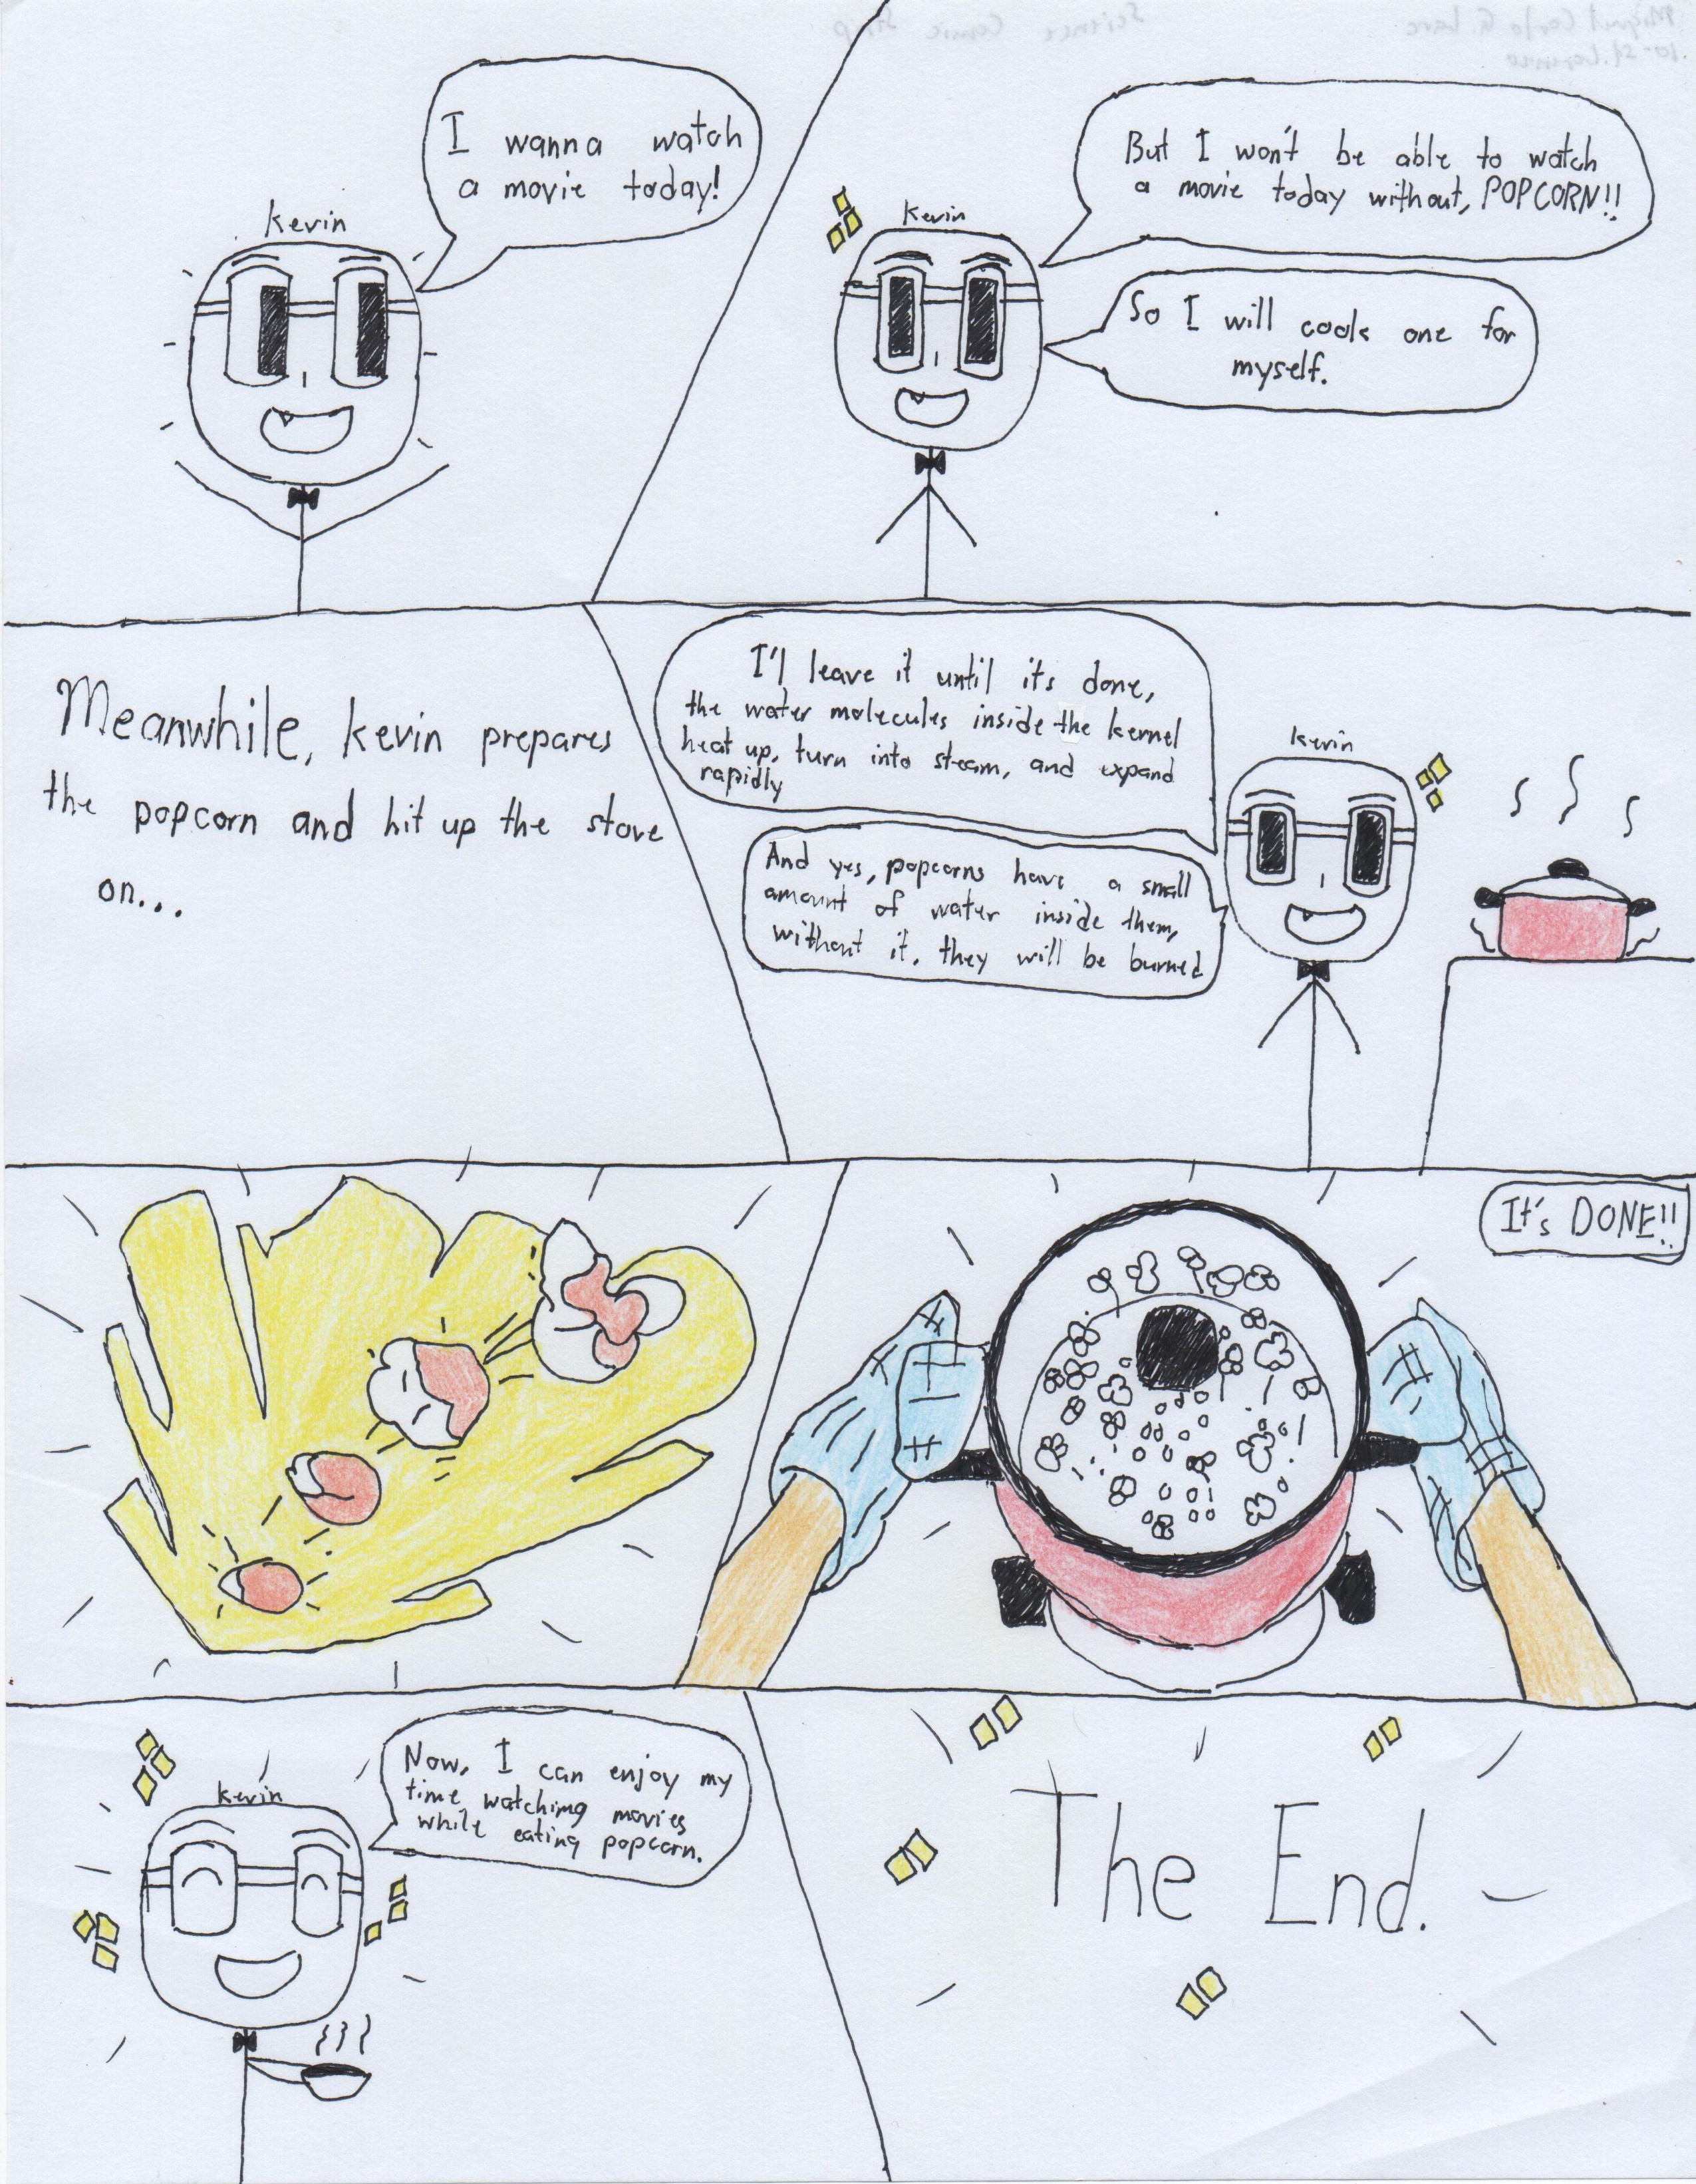 Kevin
I wanna watch
a movie today!
Kevin
But I won't be able to watch
a movie today without, POPCORN!!
So I will cook one for
myself.
Meanwhile, kevin prepares
the popcorn and hit up the stove
on...
I'l leave it until its done,
the water molecules inside the kernel
heat up, turn into steam, and expand
rapidly
Kevin
And yes, popcorns have a small
amount of water inside them,
without it, they will be burned
It's DONE!!
kevin
Now, I can enjoy my
time watching movies
while eating popcorn.
The End.
Science Comic Strip